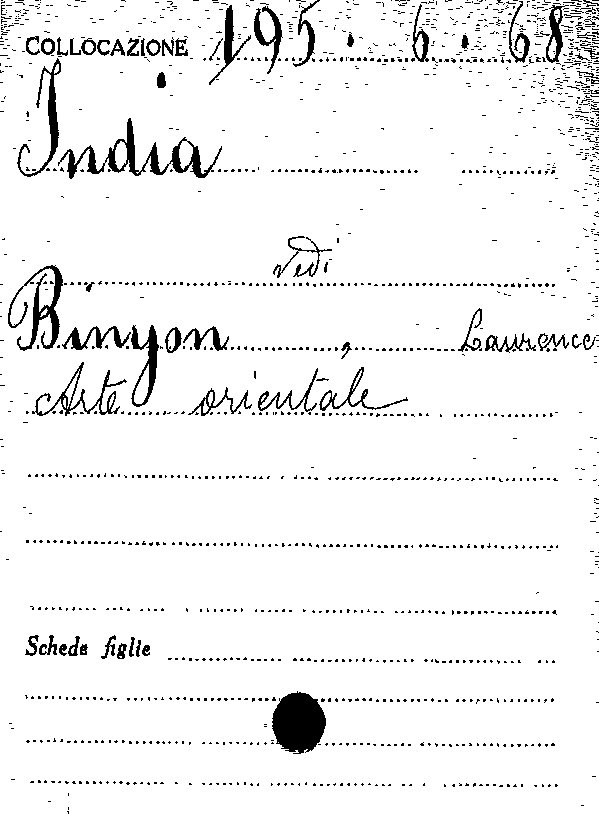 COLLOCAZIONE 195 . 6 . 68
India
vedi
Binyon , Laurence
Arte orientale
Schede figlie